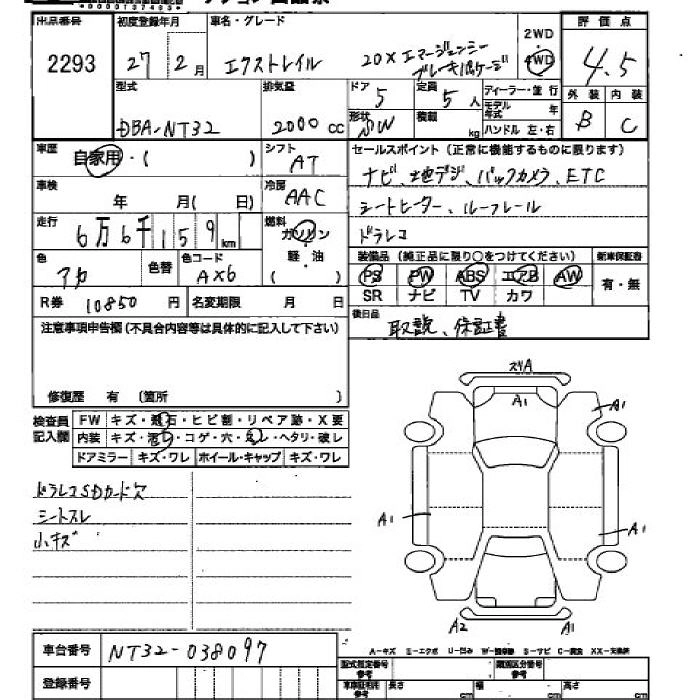 出品番号 初度登録年月 車名・グレード 2WD 評価点
2293 27年2月 エクストレイル 20X エマージェンシー ブレーキパッケージ 4WD 4.5
型式 排気量 ドア 定員 ディーラー・並行 外装 内装
DBA-NT32 2000 cc 5 5人 モデル年式 年 B C
形状 積載 ハンドル 左・右
SW kg
車歴 シフト セールスポイント(正常に機能するものに限ります)
自家用・( ) AT ナビ、地デジ、バックカメラ、ETC
車検 冷房 シートヒーター、ルーフレール
年 月( 日) AAC ドラレコ
走行 燃料 装備品(純正品に限り○をつけてください) 新車保証書
6万6千159km ガソリン PS PW ABS エアB AW 有・無
色 色替 色コード 軽・油 SR ナビ TV カワ
アカ AX6 ( )
R券 10850円 名変期限 月 日 後日品
取説、保証書
注意事項申告欄(不具合内容等は具体的に記入して下さい)
修復歴 有 (箇所 )
検査員記入欄 FW キズ・飛石・ヒビ割・リペア跡・X要
内装 キズ・汚レ・コゲ・穴・スレ・ヘタリ・破レ
ドアミラー キズ・ワレ ホイール・キャップ キズ・ワレ
ドラレコSDカード欠
シートスレ
小キズ
スリA
A1
A1
A1
A1
A2
A1
車台番号 NT32-038097
登録番号
A-キズ E-エクボ U-凹み S-サビ C-腐食 XX-交換済
型式指定番号 類別区分番号
長さ cm 幅 cm 高さ cm